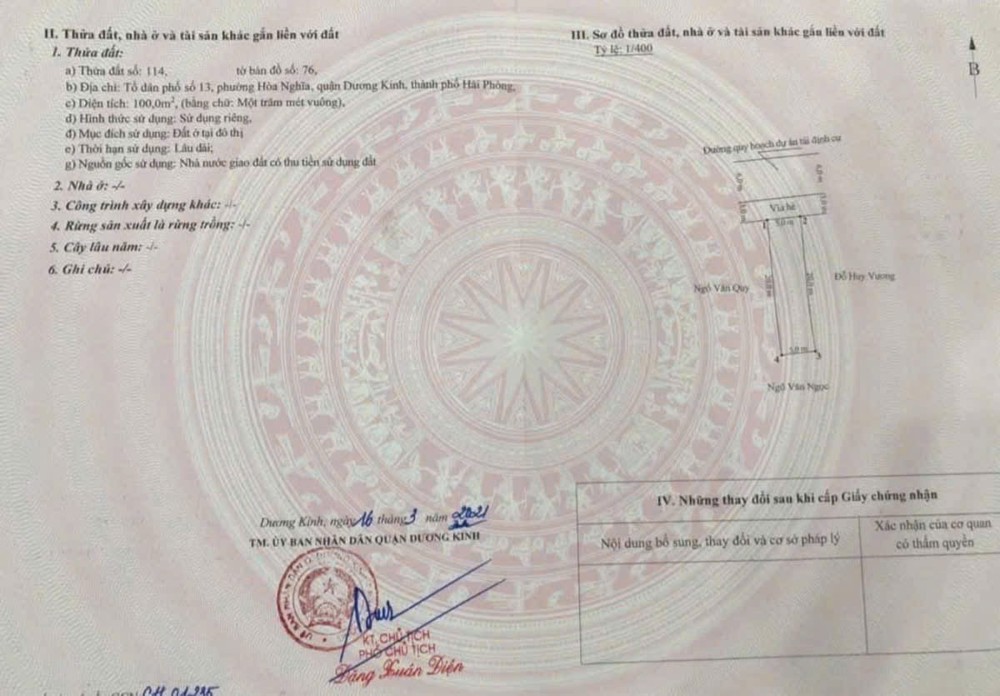 II. Thửa đất, nhà ở và tài sản khác gắn liền với đất
1. Thửa đất:
a) Thửa đất số: 114, tờ bản đồ số: 76,
b) Địa chỉ: Tổ dân phố số 13, phường Hòa Nghĩa, quận Dương Kinh, thành phố Hải Phòng,
c) Diện tích: 100,0m², (bằng chữ: Một trăm mét vuông),
d) Hình thức sử dụng: Sử dụng riêng,
đ) Mục đích sử dụng: Đất ở tại đô thị
e) Thời hạn sử dụng: Lâu dài;
g) Nguồn gốc sử dụng: Nhà nước giao đất có thu tiền sử dụng đất
2. Nhà ở: -/-
3. Công trình xây dựng khác: -/-
4. Rừng sản xuất là rừng trồng: -/-
5. Cây lâu năm: -/-
6. Ghi chú: -/-
III. Sơ đồ thửa đất, nhà ở và tài sản khác gắn liền với đất
Tỷ lệ: 1/400
B
Đường quy hoạch dự án tái định cư
Vỉa hè
1 5,0 m 2
Ngô Văn Quy
20,0 m
20,0 m
Đỗ Huy Vương
4 5,0 m 3
Ngô Văn Ngọc
Dương Kinh, ngày 16 tháng 3 năm 2021
TM. ỦY BAN NHÂN DÂN QUẬN DƯƠNG KINH
KT. CHỦ TỊCH
PHÓ CHỦ TỊCH
Đặng Xuân Diện
IV. Những thay đổi sau khi cấp Giấy chứng nhận
Nội dung bổ sung, thay đổi và cơ sở pháp lý
Xác nhận của cơ quan
có thẩm quyền